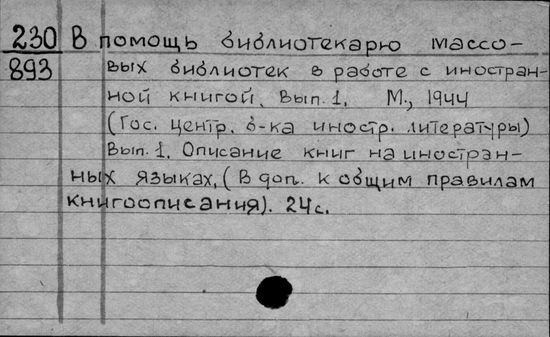 230 В помощь библиотекарю массо-
893 вых библиотек в работе с иностран-
ной книгой. Вып. 1. М., 1944
(Гос. центр. б-ка иностр. литературы)
Вып. 1. Описание книг на иностран-
ных языках, (В доп. к общим правилам
книгоописания). 24 с.